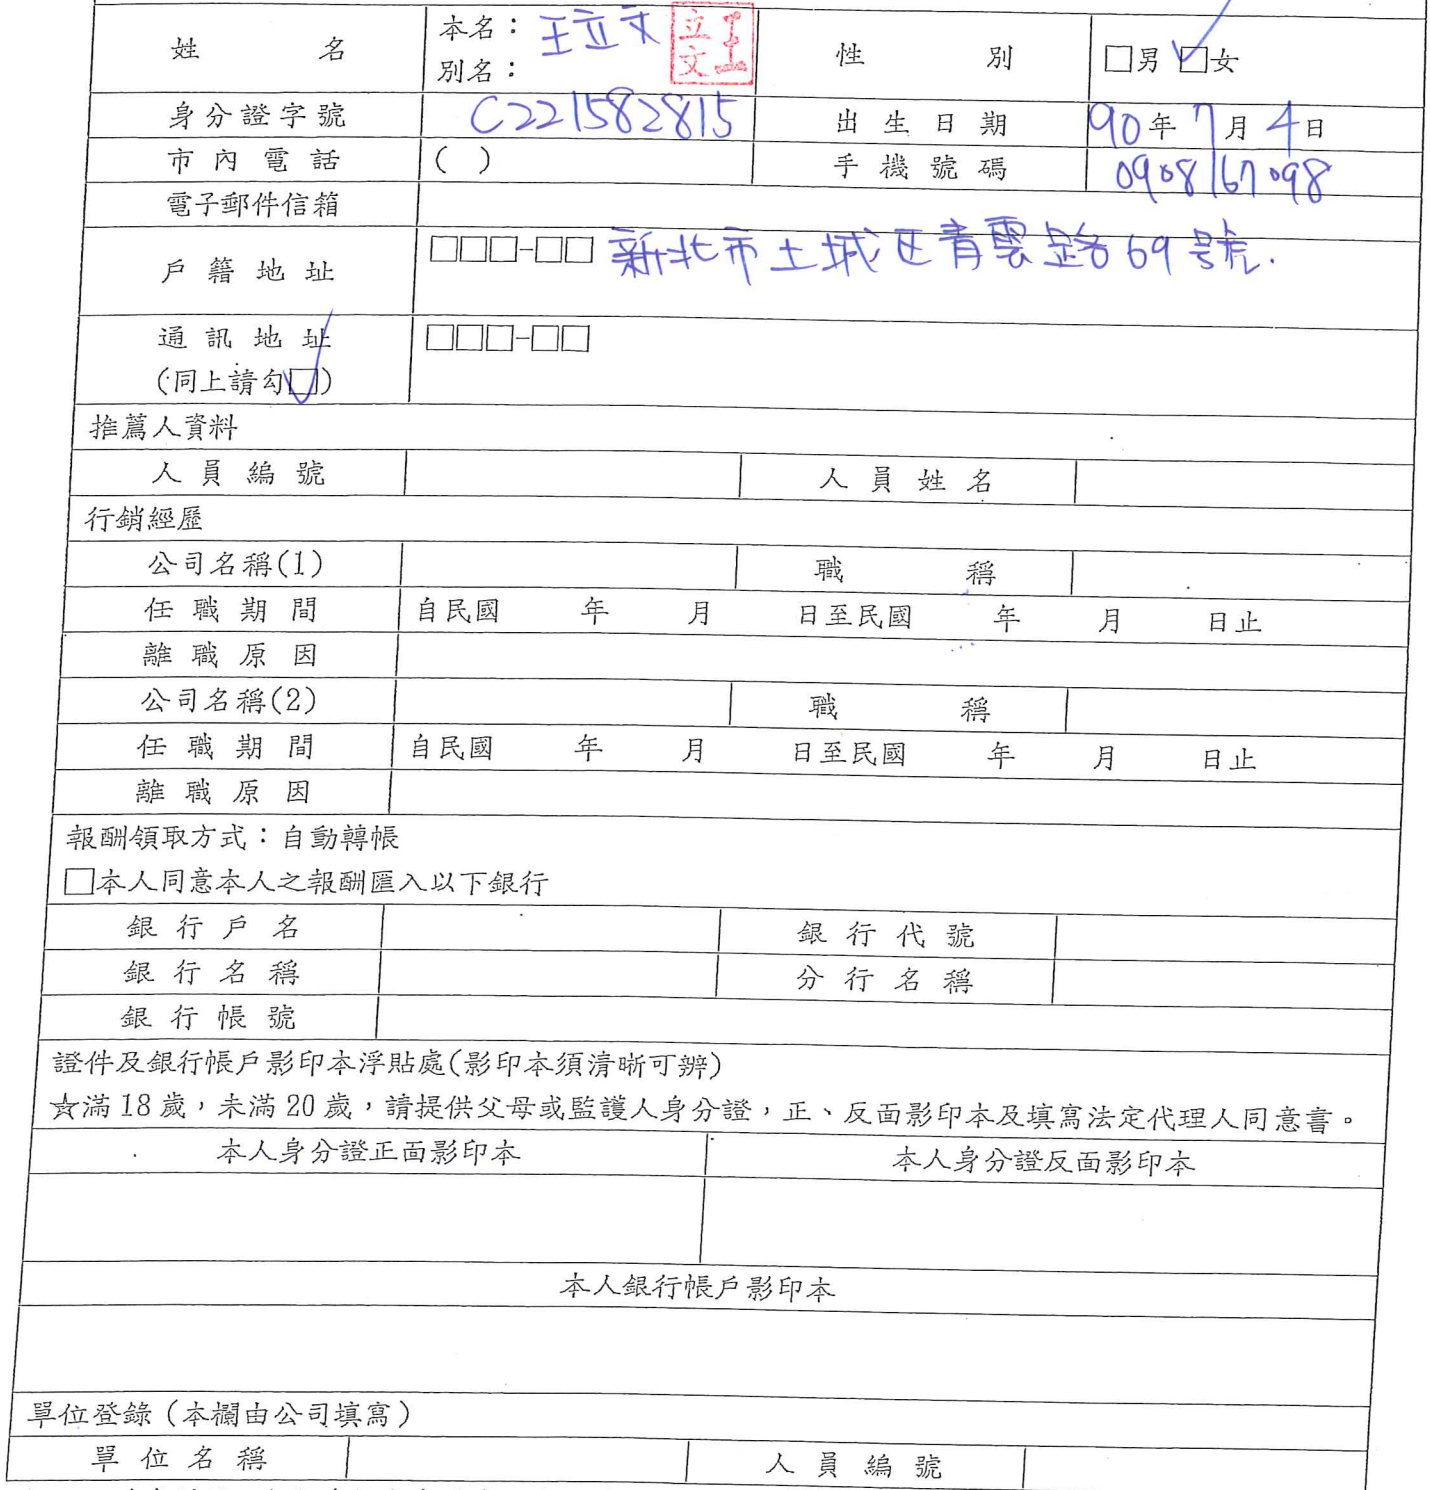 姓名 本名：王立文 立文王 性別 □男 ☑女
別名：
身分證字號 C221582815 出生日期 90年7月4日
市內電話 ( ) 手機號碼 0908167098
電子郵件信箱
戶籍地址 □□□-□□ 新北市土城区青雲路69號.
通訊地址 □□□-□□
(同上請勾☑)
推薦人資料
人員編號 人員姓名
行銷經歷
公司名稱(1) 職稱
任職期間 自民國 年 月 日至民國 年 月 日止
離職原因
公司名稱(2) 職稱
任職期間 自民國 年 月 日至民國 年 月 日止
離職原因
報酬領取方式：自動轉帳
□本人同意本人之報酬匯入以下銀行
銀行戶名 銀行代號
銀行名稱 分行名稱
銀行帳號
證件及銀行帳戶影印本浮貼處(影印本須清晰可辨)
☆滿18歲，未滿20歲，請提供父母或監護人身分證，正、反面影印本及填寫法定代理人同意書。
本人身分證正面影印本 本人身分證反面影印本
本人銀行帳戶影印本
單位登錄（本欄由公司填寫）
單位名稱 人員編號